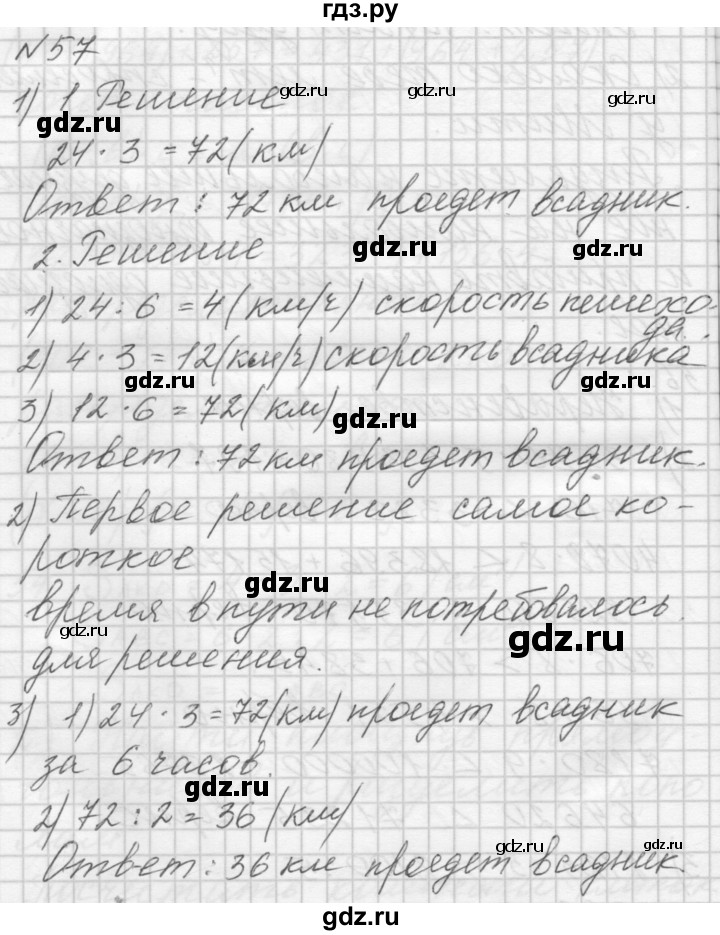 гдз.ру
№57
1) 1. Решение
gdz.ru
gdz.ru
gdz.ru
gdz.ru
24 · 3 = 72 (км)
Ответ: 72 км проедет всадник.
2. Решение
gdz.ru
gdz.ru
1) 24 : 6 = 4 (км/ч) скорость пешехо-
да.
2) 4 · 3 = 12 (км/ч) скорость всадника
gdz.ru
gdz.ru
3) 12 · 6 = 72 (км)
gdz.ru
Ответ: 72 км проедет всадник.
2) Первое решение самое ко-
роткое
gdz.ru
время в пути не потребовалось
gdz.ru
gdz.ru
для решения.
3) 1) 24 · 3 = 72 (км) проедет всадник
за 6 часов.
gdz.ru
2) 72 : 2 = 36 (км)
gdz.ru
gdz.ru
Ответ: 36 км проедет всадник.
gdz.ru